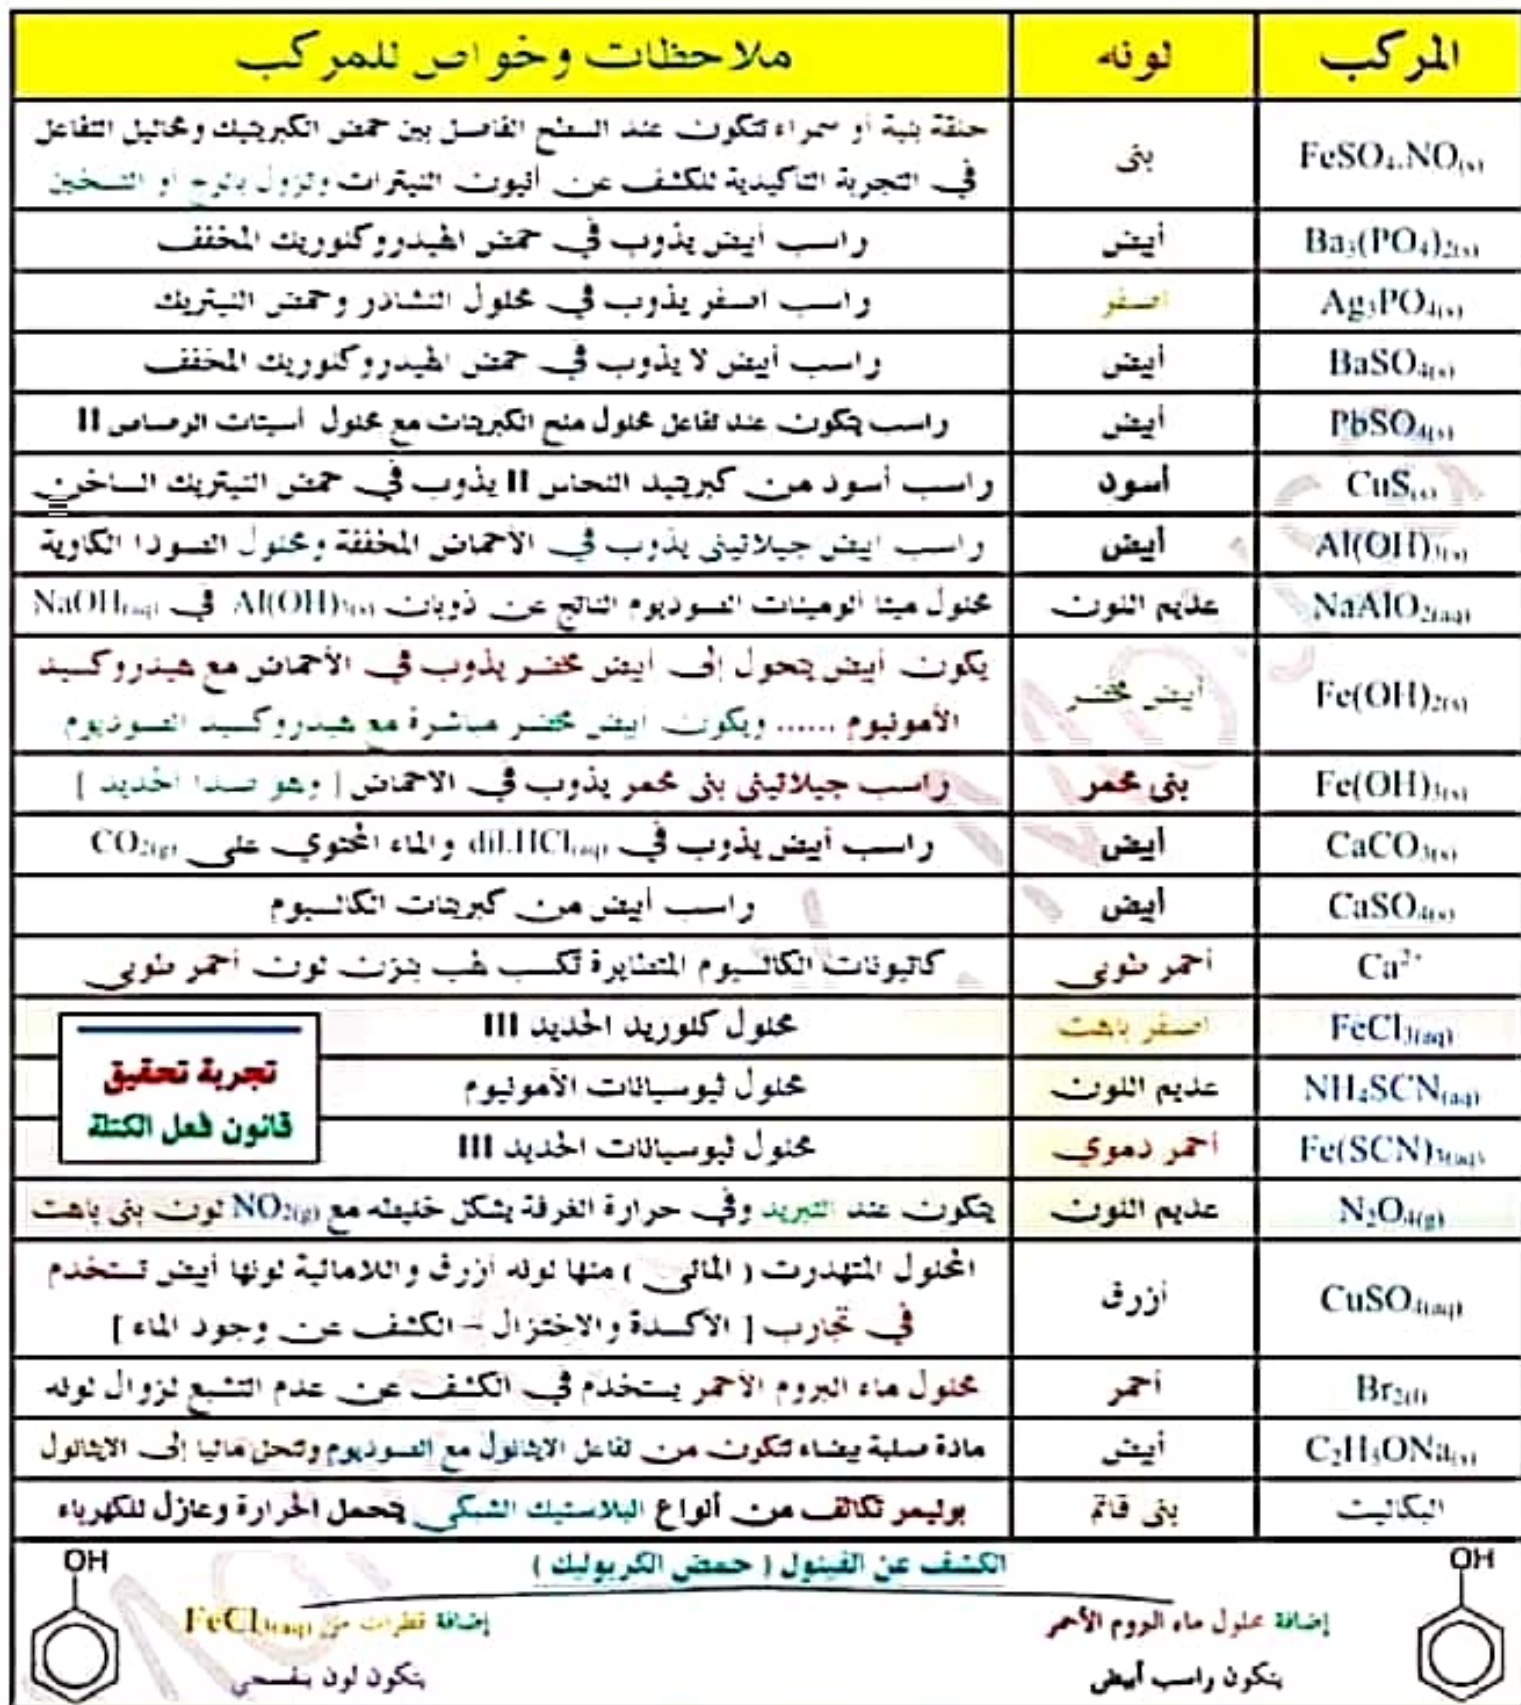 المركب لونه ملاحظات وخواص للمركب
FeSO₄.NO₍ₛ₎ بنى حلقة بنية أو سمراء تتكون عند السطح الفاصل بين حمض الكبريتيك ومحاليل التفاعل
في التجربة التأكيدية للكشف عن أنيون النيترات وتزول بالرج أو التسخين
Ba₃(PO₄)₂₍ₛ₎ أبيض راسب أبيض يذوب في حمض الهيدروكلوريك المخفف
Ag₃PO₄₍ₛ₎ أصفر راسب اصفر يذوب في محلول النشادر وحمض النيتريك
BaSO₄₍ₛ₎ أبيض راسب أبيض لا يذوب في حمض الهيدروكلوريك المخفف
PbSO₄₍ₛ₎ أبيض راسب يتكون عند تفاعل محلول ملح الكبريتات مع محلول أسيتات الرصاص II
CuS₍ₛ₎ أسود راسب أسود من كبريتيد النحاس II يذوب في حمض النيتريك الساخن
Al(OH)₃₍ₛ₎ أبيض راسب ابيض جيلاتينى يذوب في الأحماض المخففة ومحلول الصودا الكاوية
NaAlO₂₍aq₎ عديم اللون محلول ميتا ألومينات الصوديوم الناتج عن ذوبان Al(OH)₃₍ₛ₎ في NaOH₍aq₎
Fe(OH)₂₍ₛ₎ أبيض مخضر يكون أبيض يتحول إلى أبيض مخضر يذوب في الأحماض مع هيدروكسيد
الأمونيوم ...... ويكون ابيض مخضر مباشرة مع هيدروكسيد الصوديوم
Fe(OH)₃₍ₛ₎ بنى محمر راسب جيلاتينى بنى محمر يذوب في الاحماض [ وهو صدا الحديد ]
CaCO₃₍ₛ₎ أبيض راسب أبيض يذوب في dil.HCl₍aq₎ والماء المحتوي على CO₂₍g₎
CaSO₄₍ₛ₎ أبيض راسب أبيض من كبريتات الكالسيوم
Ca²⁺ أحمر طوبى كاتيونات الكالسيوم المتطايرة تكسب لهب بنزن لون أحمر طوبى
FeCl₃₍aq₎ اصفر باهت محلول كلوريد الحديد III
NH₄SCN₍aq₎ عديم اللون محلول ثيوسيانات الأمونيوم
Fe(SCN)₃₍aq₎ أحمر دموي محلول ثيوسيانات الحديد III
تجربة تحقيق
قانون فعل الكتلة
N₂O₄₍g₎ عديم اللون يتكون عند التبريد وفي حرارة الغرفة يشكل خليطه مع NO₂₍g₎ لون بنى باهت
CuSO₄₍aq₎ أزرق المحلول المتهدرت ( المائى ) منها لونه أزرق واللامائية لونها أبيض تستخدم
في تجارب [ الأكسدة والاختزال - الكشف عن وجود الماء ]
Br₂₍l₎ أحمر محلول ماء البروم الأحمر يستخدم في الكشف عن عدم التشبع لزوال لونه
C₂H₅ONa₍ₛ₎ أبيض مادة صلبة بيضاء تتكون من تفاعل الايثانول مع الصوديوم وتتحلل مائيا إلى الايثانول
البكاليت بنى قاتم بوليمر تكاثف من ألواع البلاستيك الشبكى يتحمل الحرارة وعازل للكهرباء
الكشف عن الفينول ( حمض الكربوليك )
OH
إضافة محلول ماء البروم الأحمر
يتكون راسب أبيض
إضافة قطرات من FeCl₃₍aq₎
يتكون لون بنفسجى
OH